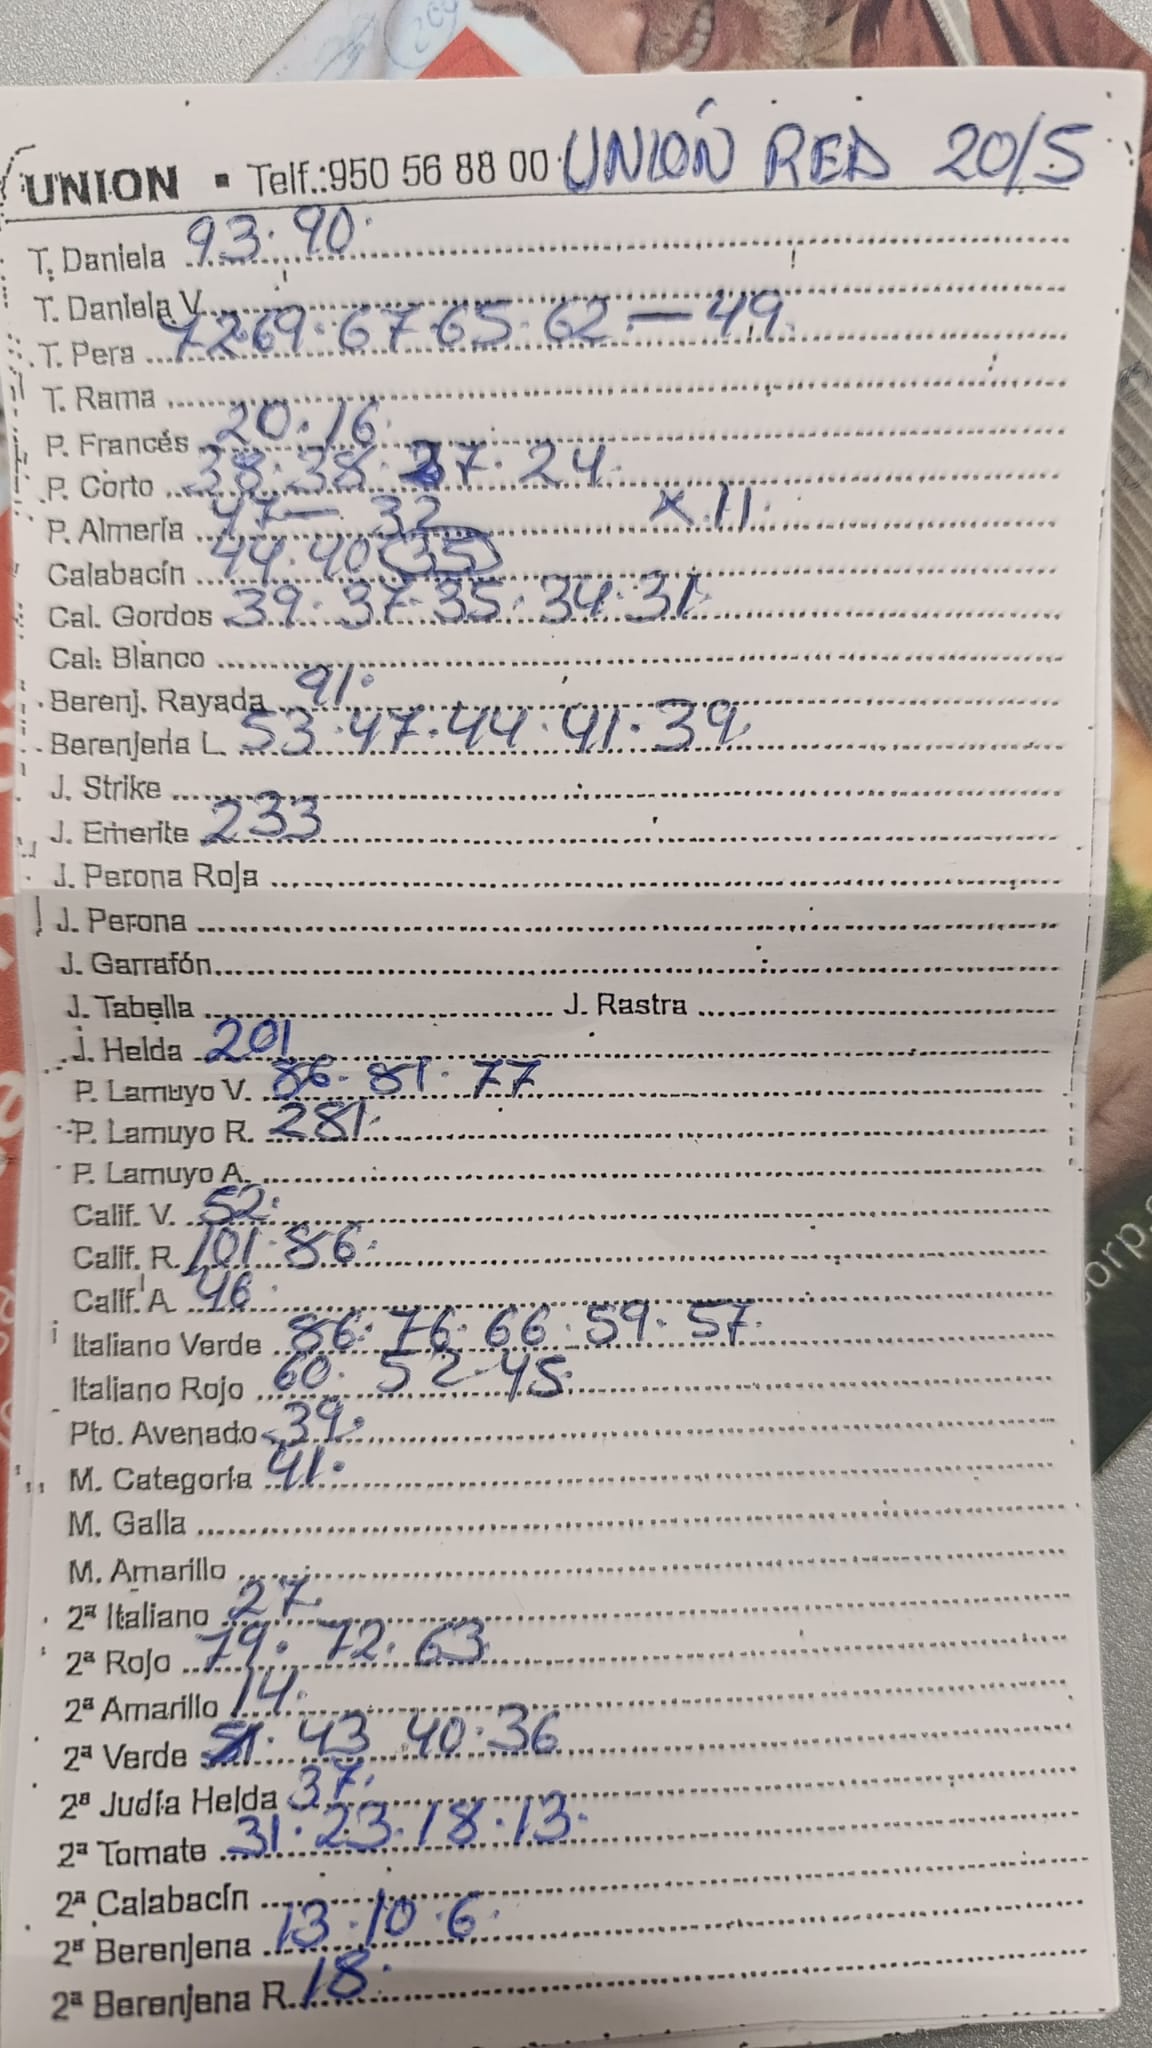 UNION ▪ Telf.:950 56 88 00 UNIÓN RED 20/5
T. Daniela 93. 90.
T. Daniela V.
T. Pera 72 69. 67 65. 62 — 49.
T. Rama
P. Francés 20. 16.
P. Corto 38. 38. 27. 24.
P. Almería 47 — 32 x 11.
Calabacín 44. 40 (35)
Cal. Gordos 39. 37. 35. 34. 31.
Cal. Blanco
Berenj. Rayada 91.
Berenjena L. 53. 47. 44. 41. 39.
J. Strike
J. Emerite 233
J. Perona Roja
J. Perona
J. Garrafón
J. Tabella J. Rastra
J. Helda 201
P. Lamuyo V. 86. 81. 77
P. Lamuyo R. 281.
P. Lamuyo A.
Calif. V. 52.
Calif. R. 101. 86.
Calif. A. 46.
Italiano Verde 86. 76. 66. 59. 57.
Italiano Rojo 60. 52. 45.
Pto. Avenado 39.
M. Categoría 41.
M. Galla
M. Amarillo
2ª Italiano 27.
2ª Rojo 79. 72. 63.
2ª Amarillo 14.
2ª Verde 51. 43 40. 36
2ª Judía Helda 37.
2ª Tomate 31. 23. 18. 13.
2ª Calabacín
2ª Berenjena 13. 10. 6.
2ª Berenjena R. 18.